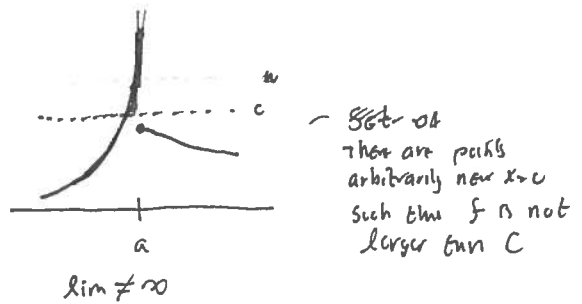 c
There are points
arbitrarily near x=a
such that f is not
larger than C
a
lim ≠ ∞